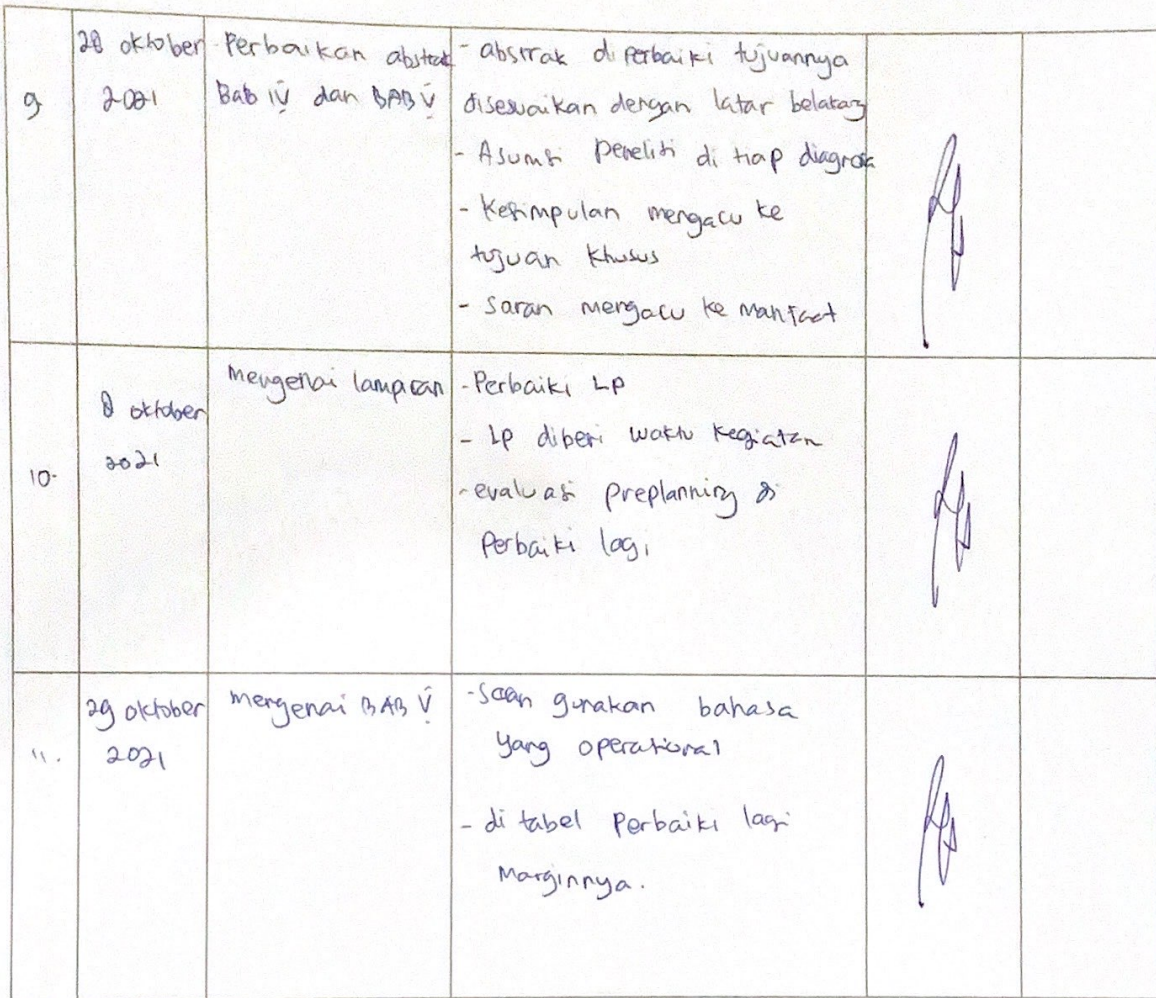 9
28 oktober
2021
Perbaikan abstrak
Bab IV dan BAB V
- abstrak diperbaiki tujuannya
disesuaikan dengan latar belakang
- Asumsi peneliti di tiap diagnosa
- Kesimpulan mengacu ke
tujuan khusus
- Saran mengacu ke manfaat
10.
oktober
2021
Mengenai lampiran
- Perbaiki LP
- LP diberi waktu kegiatan
- evaluasi preplanning di
Perbaiki lagi
11.
29 oktober
2021
mengenai BAB V
- Saran gunakan bahasa
yang operational
- di tabel Perbaiki lagi
Marginnya.